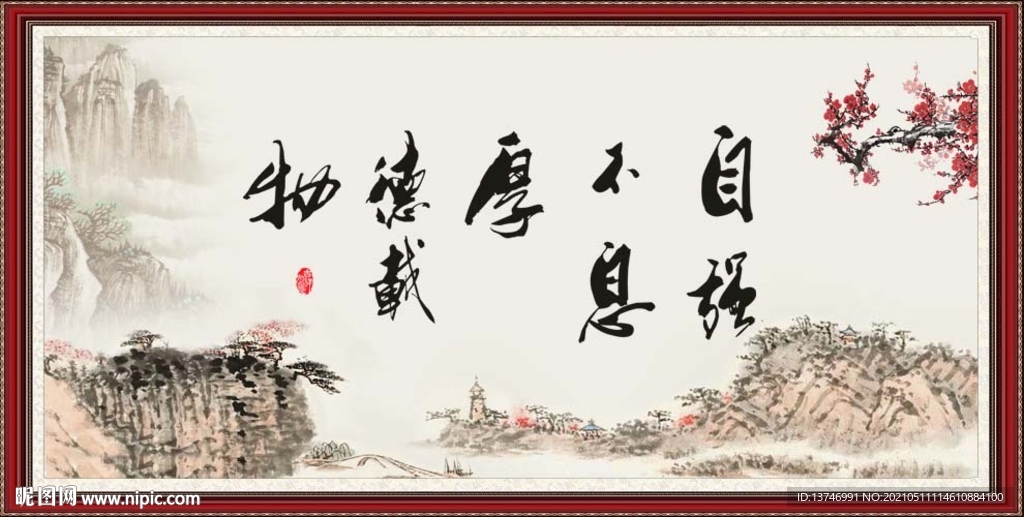 自强
不息
厚
德載
物
昵图网 www.nipic.com
ID:13746991 NO:20210511114610884100